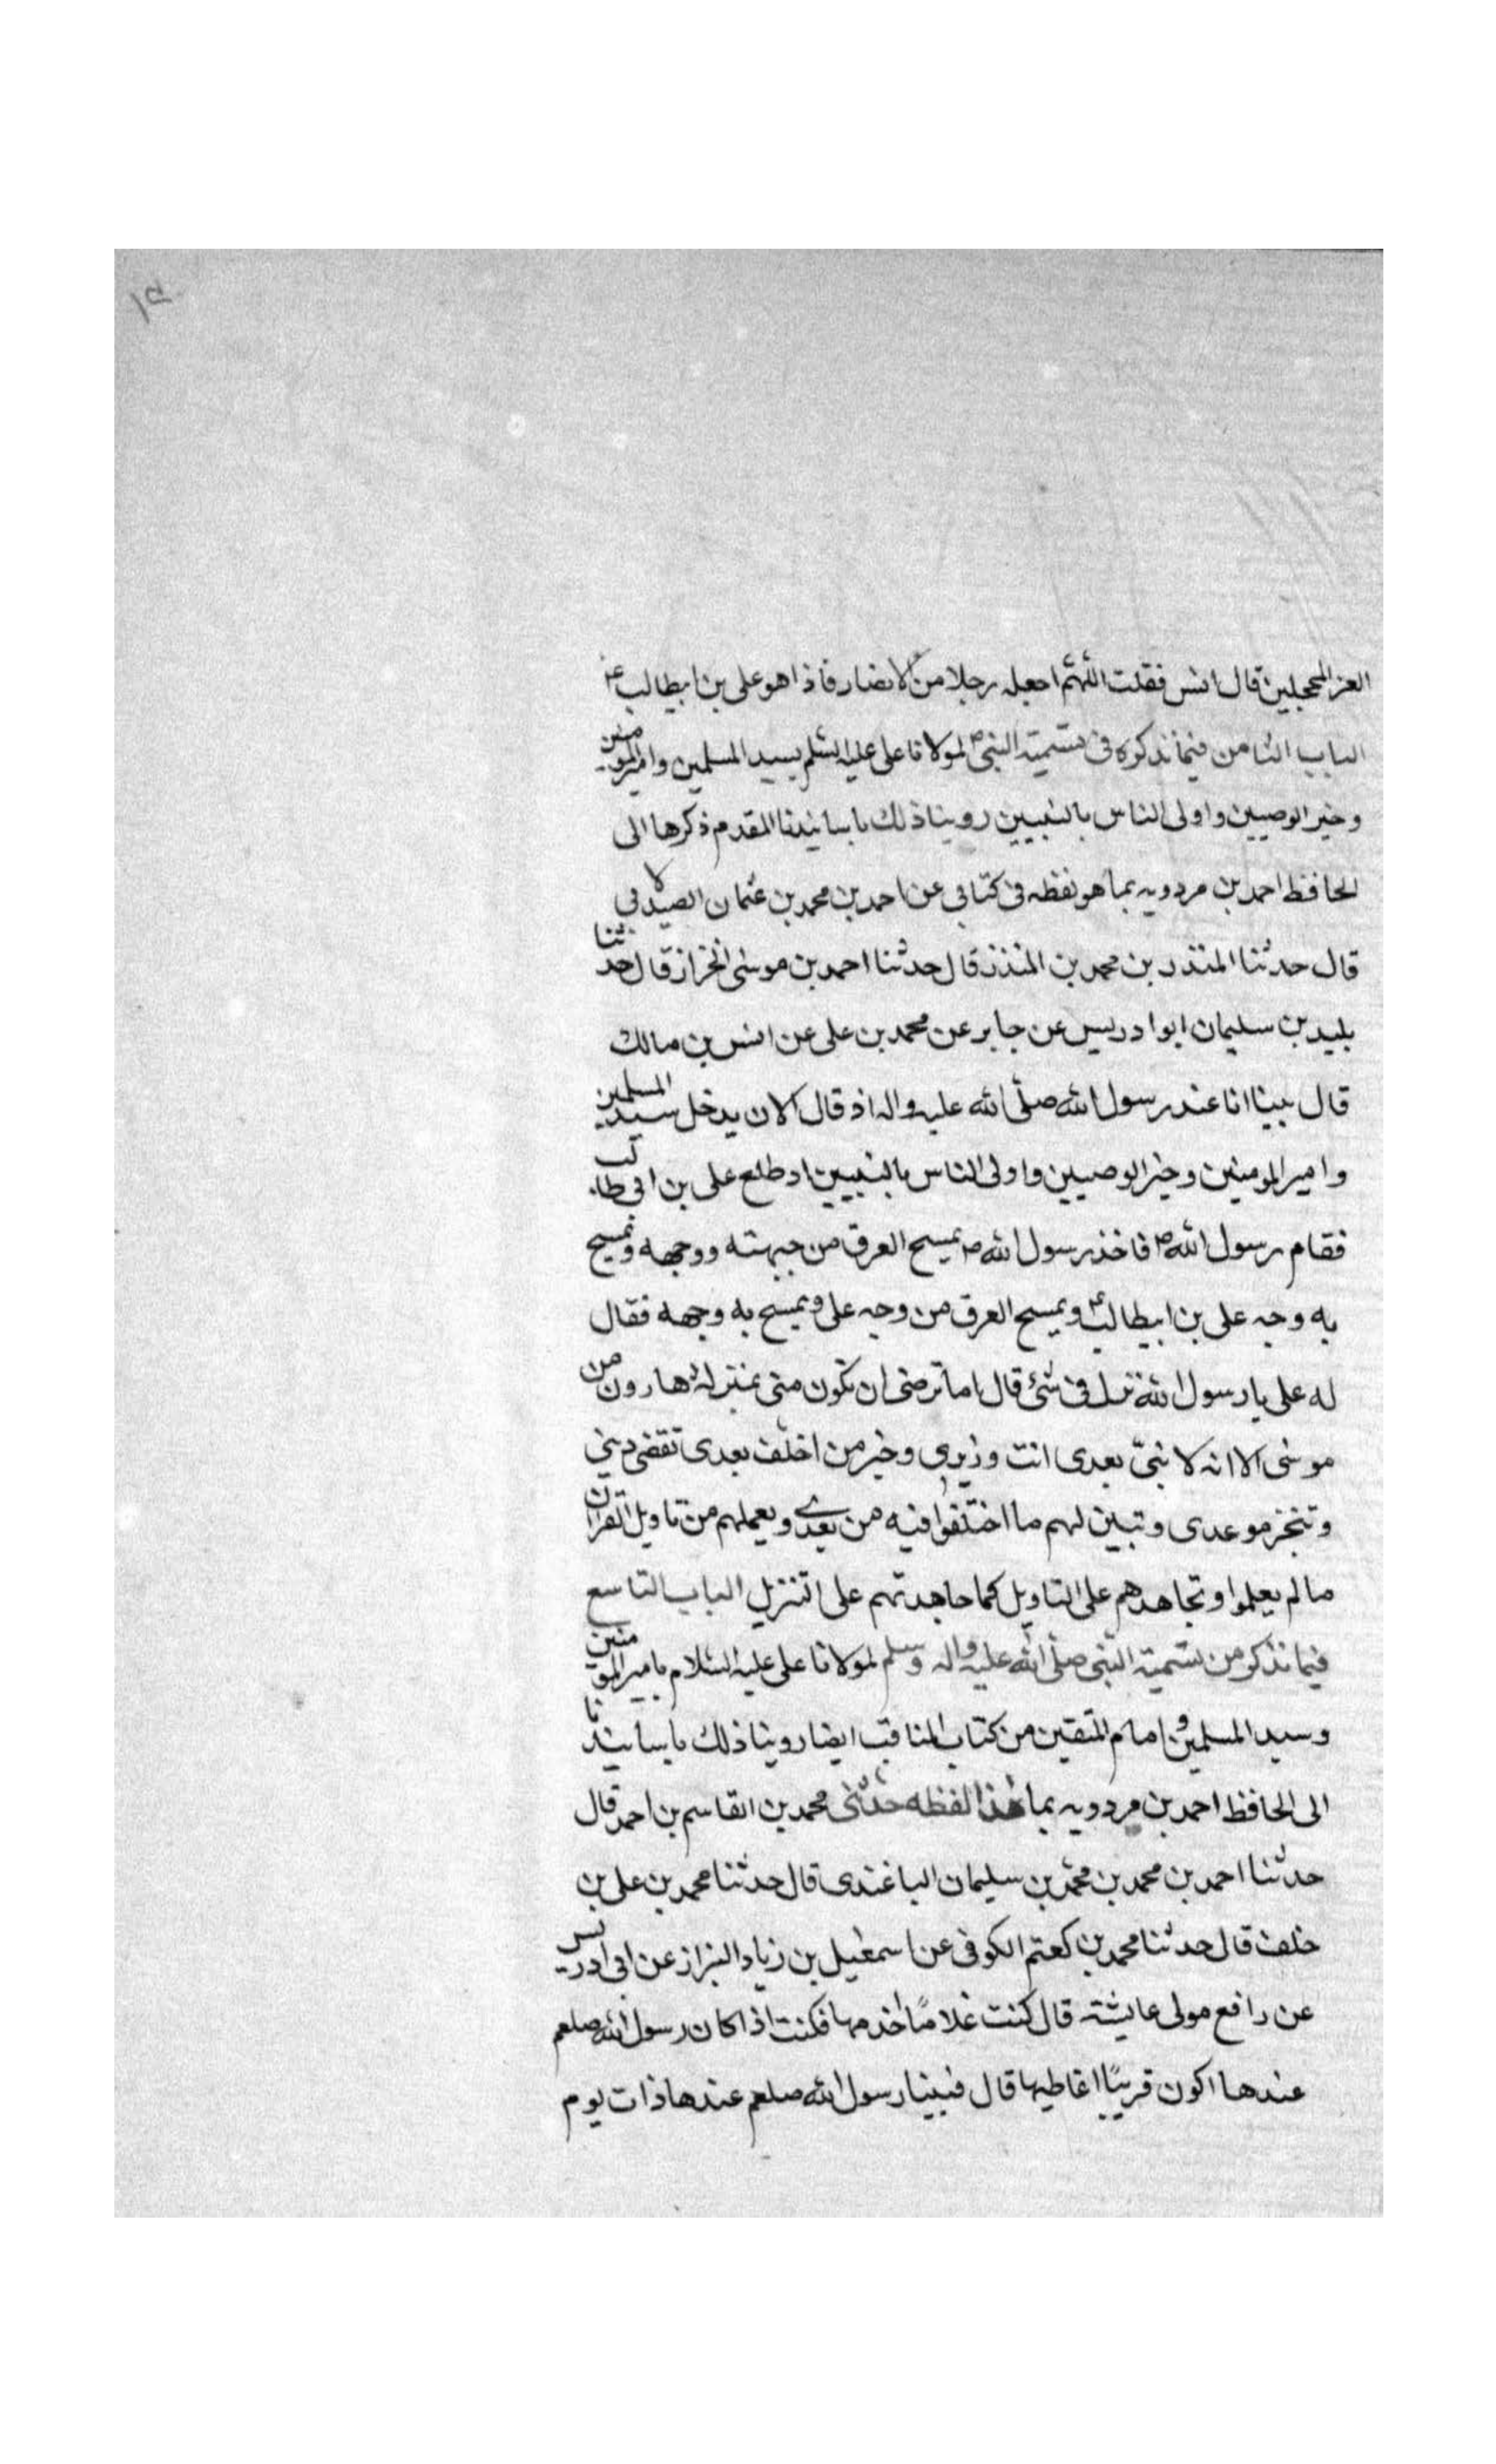 ١٥
الغر المحجلين قال انس فقلت اللهم اجعله رجلا من الانصار فاذا هو على بن ابيطالب ع
الباب الثامن فيما نذكره فى تسمية النبى ص لمولانا على عليه السلم بسيد المسلمين وامير المومنين
وخير الوصيين واولى الناس بالنبيين روينا ذلك باسانيدنا المقدم ذكرها الى
الحافظ احمد بن مردويه بما هو لفظه فى كتابى عن احمد بن محمد بن عثمان الصيدلانى
قال حدثنا المنذر بن محمد بن المنذر قال حدثنا احمد بن موسى الخزاز قال حدثنا
بليد بن سليمان ابو ادريس عن جابر عن محمد بن على عن انس بن مالك
قال بينا انا عند رسول الله صلى الله عليه واله اذ قال الان يدخل سيد المسلمين
وامير المومنين وخير الوصيين واولى الناس بالنبيين اذ طلع على بن ابى طالب
فقام رسول الله ص فاخذ رسول الله ص يمسح العرق من جبهته ووجهه ويمسح
به وجه على بن ابيطالب ع ويمسح العرق من وجه على ويمسح به وجهه فقال
له على يا رسول الله نزل فى شئ قال اما ترضى ان تكون منى بمنزلة هارون من
موسى الا انه لا نبى بعدى انت وزيرى وخير من اخلف بعدى تقضى دينى
وتنجز موعدى وتبين لهم ما اختلفوا فيه من بعدى ويعملهم من تاويل القران
ما لم يعلموا وتجاهدهم على التاويل كما جاهدتهم على التنزيل الباب التاسع
فيما نذكر من تسمية النبى صلى الله عليه واله وسلم لمولانا على عليه السلام بامير المؤمنين
وسيد المسلمين وامام المتقين من كتاب المناقب ايضا روينا ذلك باسانيدنا
الى الحافظ احمد بن مردويه بما هذا لفظه حدثنى محمد بن القاسم بن احمد قال
حدثنا احمد بن محمد بن محمد بن سليمان الباغندى قال حدثنا محمد بن على بن
خلف قال حدثنا محمد بن الكوفى عن اسمعيل بن زياد البزاز عن ابى ادريس
عن رافع مولى عايشة قال كنت غلامًا اخدمها فكنت اذا كان رسول الله صلعم
عندها اكون قريبًا اعاطيها قال فبينا رسول الله صلعم عندها ذات يوم